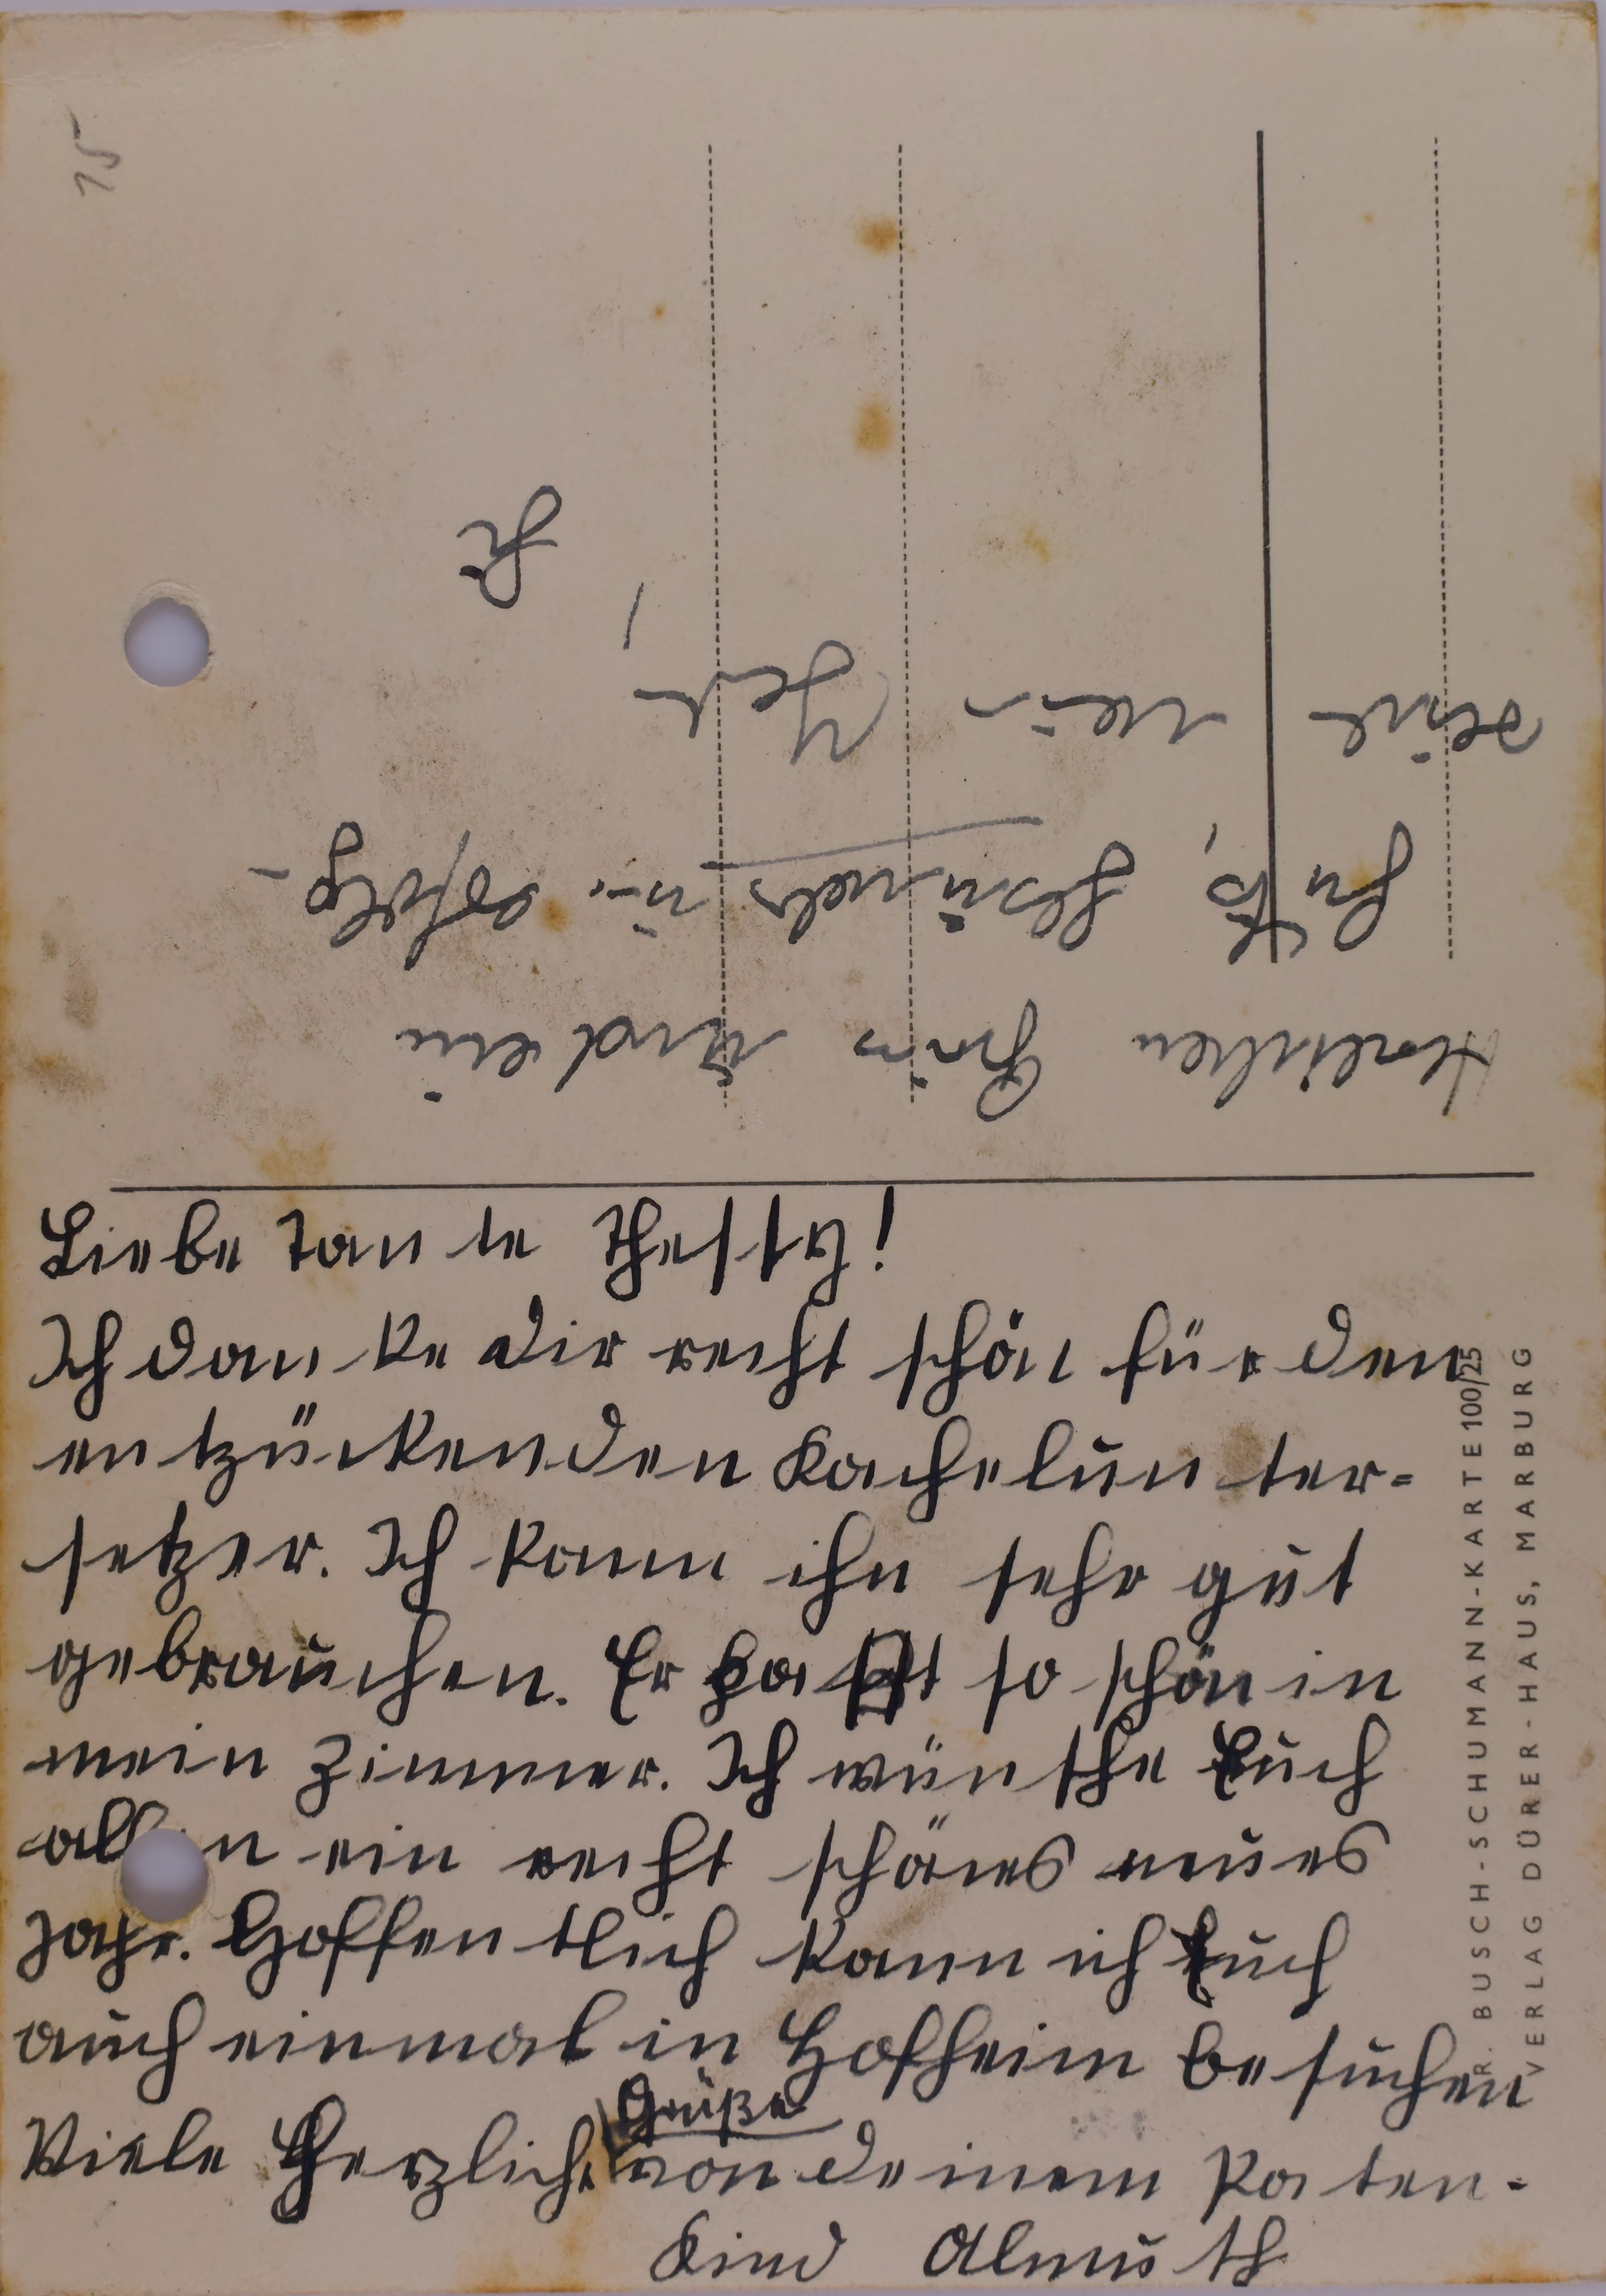 Liebe Tante Thessy!
Ich danke dir recht schön für den
entzückenden Kachelunter=
setzer. Ich kann ihn sehr gut
gebrauchen. Er paßt so schön in
mein Zimmer. Ich wünsche Euch
allen ein recht schönes neues
Jahr. Hoffentlich kann ich Euch
auch einmal in Hofheim besuchen
Grüße
Viele Herzliche von deinem Paten-
kind Almuth
Herzlichen Gruß und ein
gutes, gesundes u. erfolg-
neues
Jahr
R. BUSCH-SCHUMANN-KARTE 100/25
VERLAG DÜRER-HAUS, MARBURG
15